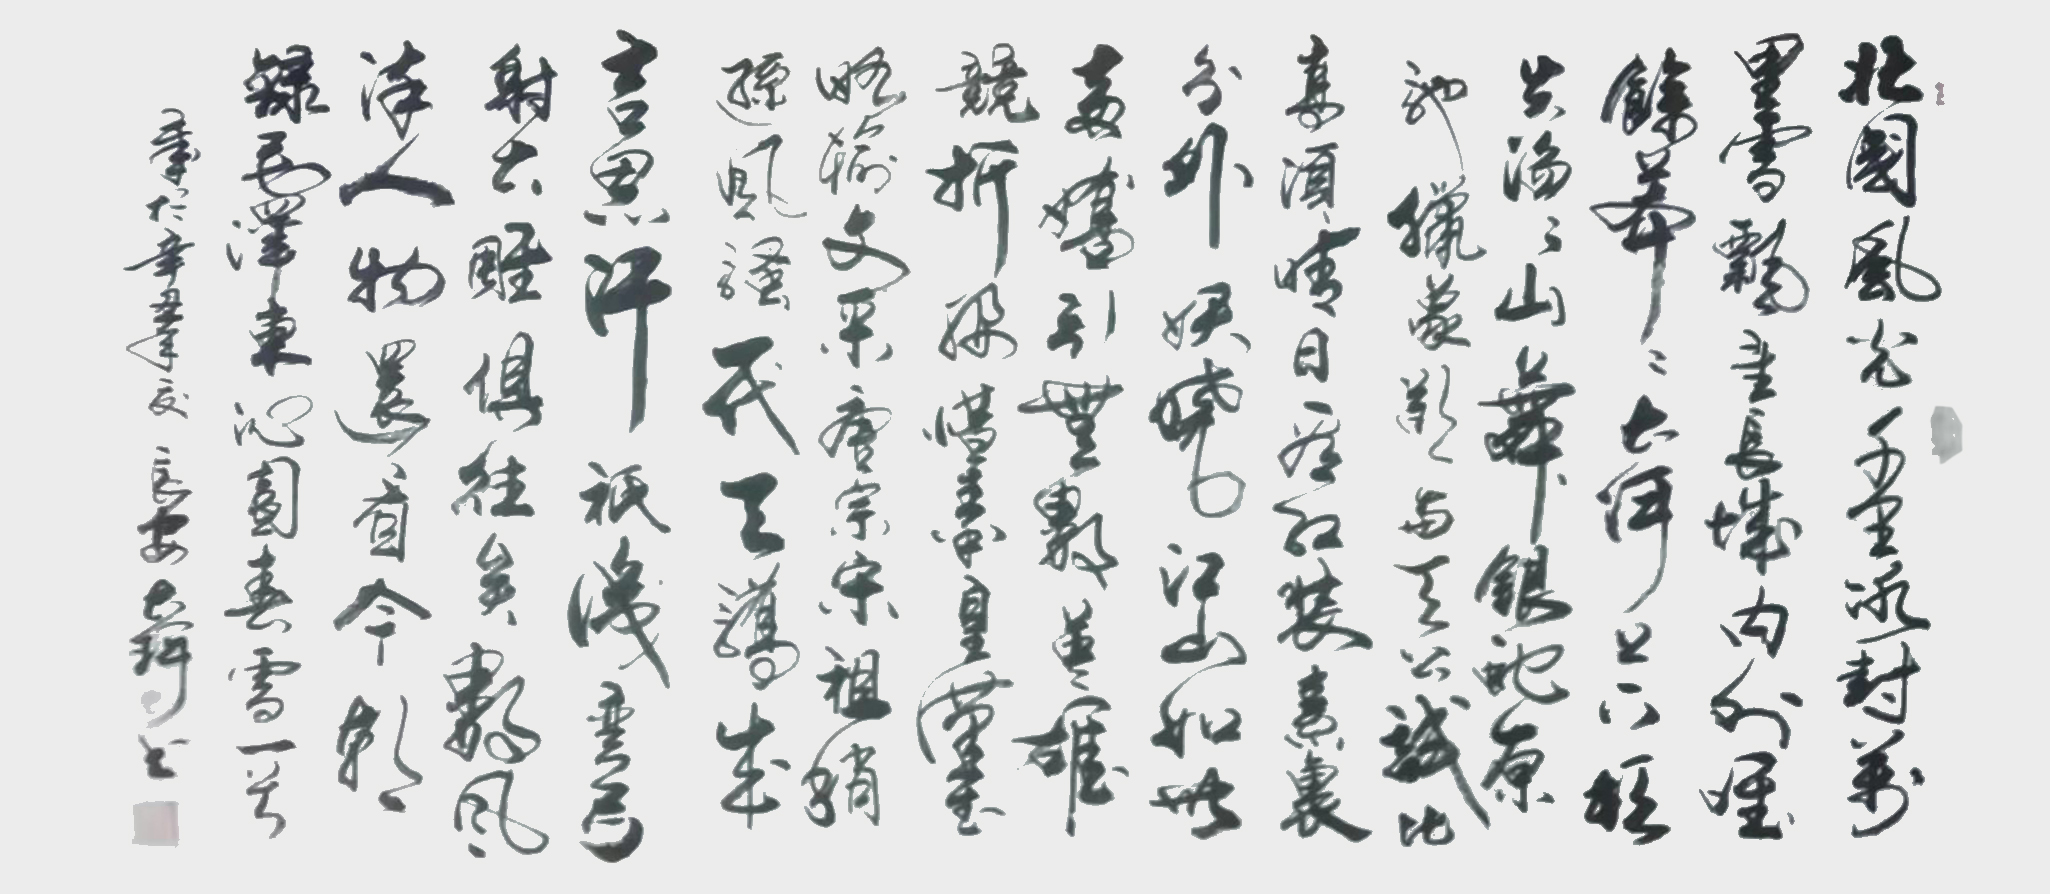 北國風光千里冰封萬
里雪飄望長城內外唯
餘莽〻大河上下頓
失滔〻山舞銀蛇原
馳蠟象欲与天公試比
高須晴日看紅裝素裹
分外妖嬈江山如此
多嬌引無數英雄
競折腰惜秦皇漢武
略輸文采唐宗宋祖稍
遜風騷一代天驕成
吉思汗祇識彎弓
射大雕俱往矣數風
流人物還看今朝
錄毛澤東沁園春雪一首
辛丑 長安 書